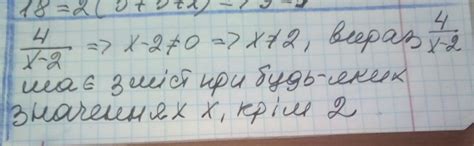 18=2(
4/(x-2) => x-2≠0 => x≠2, вираз 4/(x-2)
має зміст при будь-яких
значеннях x, крім 2